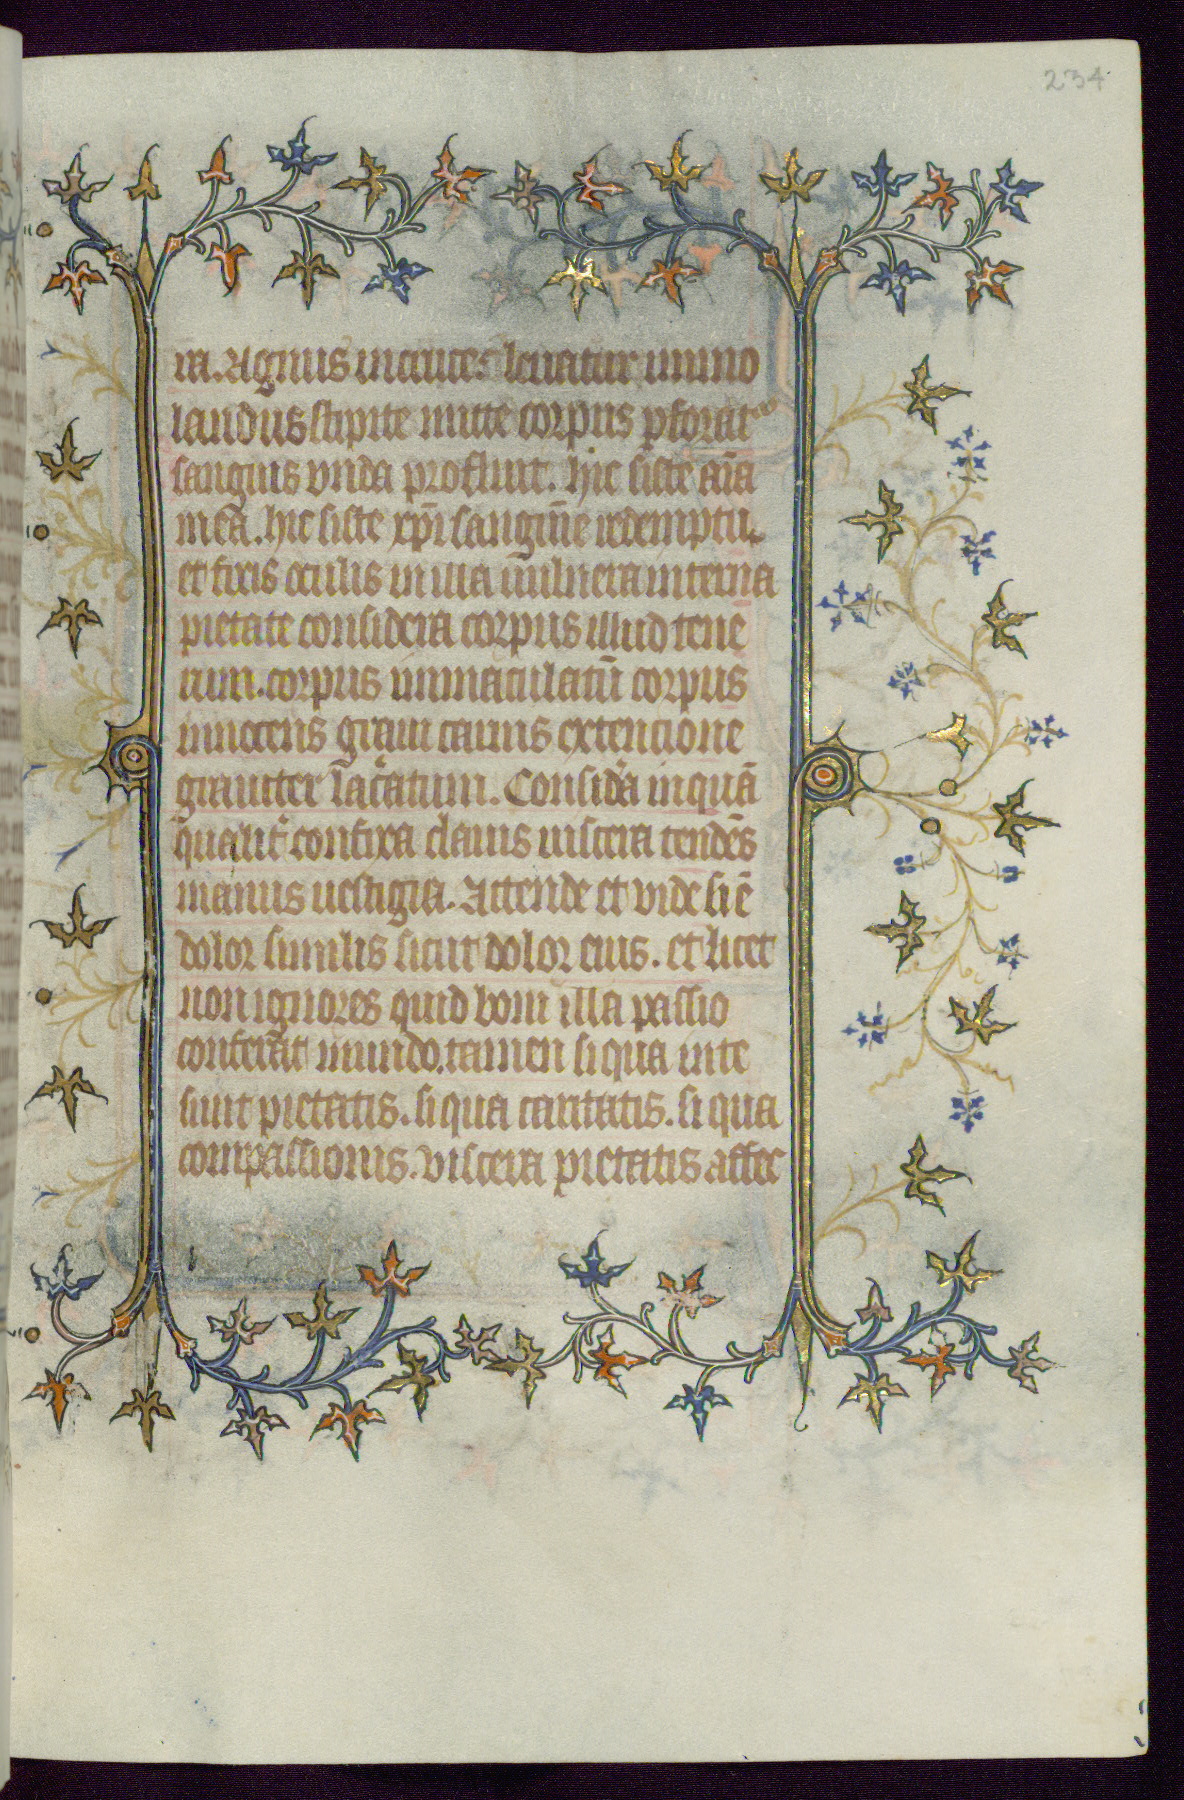 234
ra. Agnus in cruce leuatur immo
landus stipite mitte corpus pforat᷒
sanguis vnda profluit. hic siste aīa
mea. hic siste xp̄i sanguīe redempta
et fixis oculis in illa uulnera interna
pietate considera corpus illud tene
rum. corpus immaculatū corpus
innocens graui carnis extencione
grauiter lac̄atum. Considā inquā
qualit̄ confixa clauis uiscera tendēs
manus uestigia. Attende et vide si ē
dolor similis sicut dolor eius. et licet
non ignores quid boni illa passio
conferat mundo. tamen si qua in te
sunt pietatis. si qua caritatis. si qua
compassionis. viscera pietatis affec